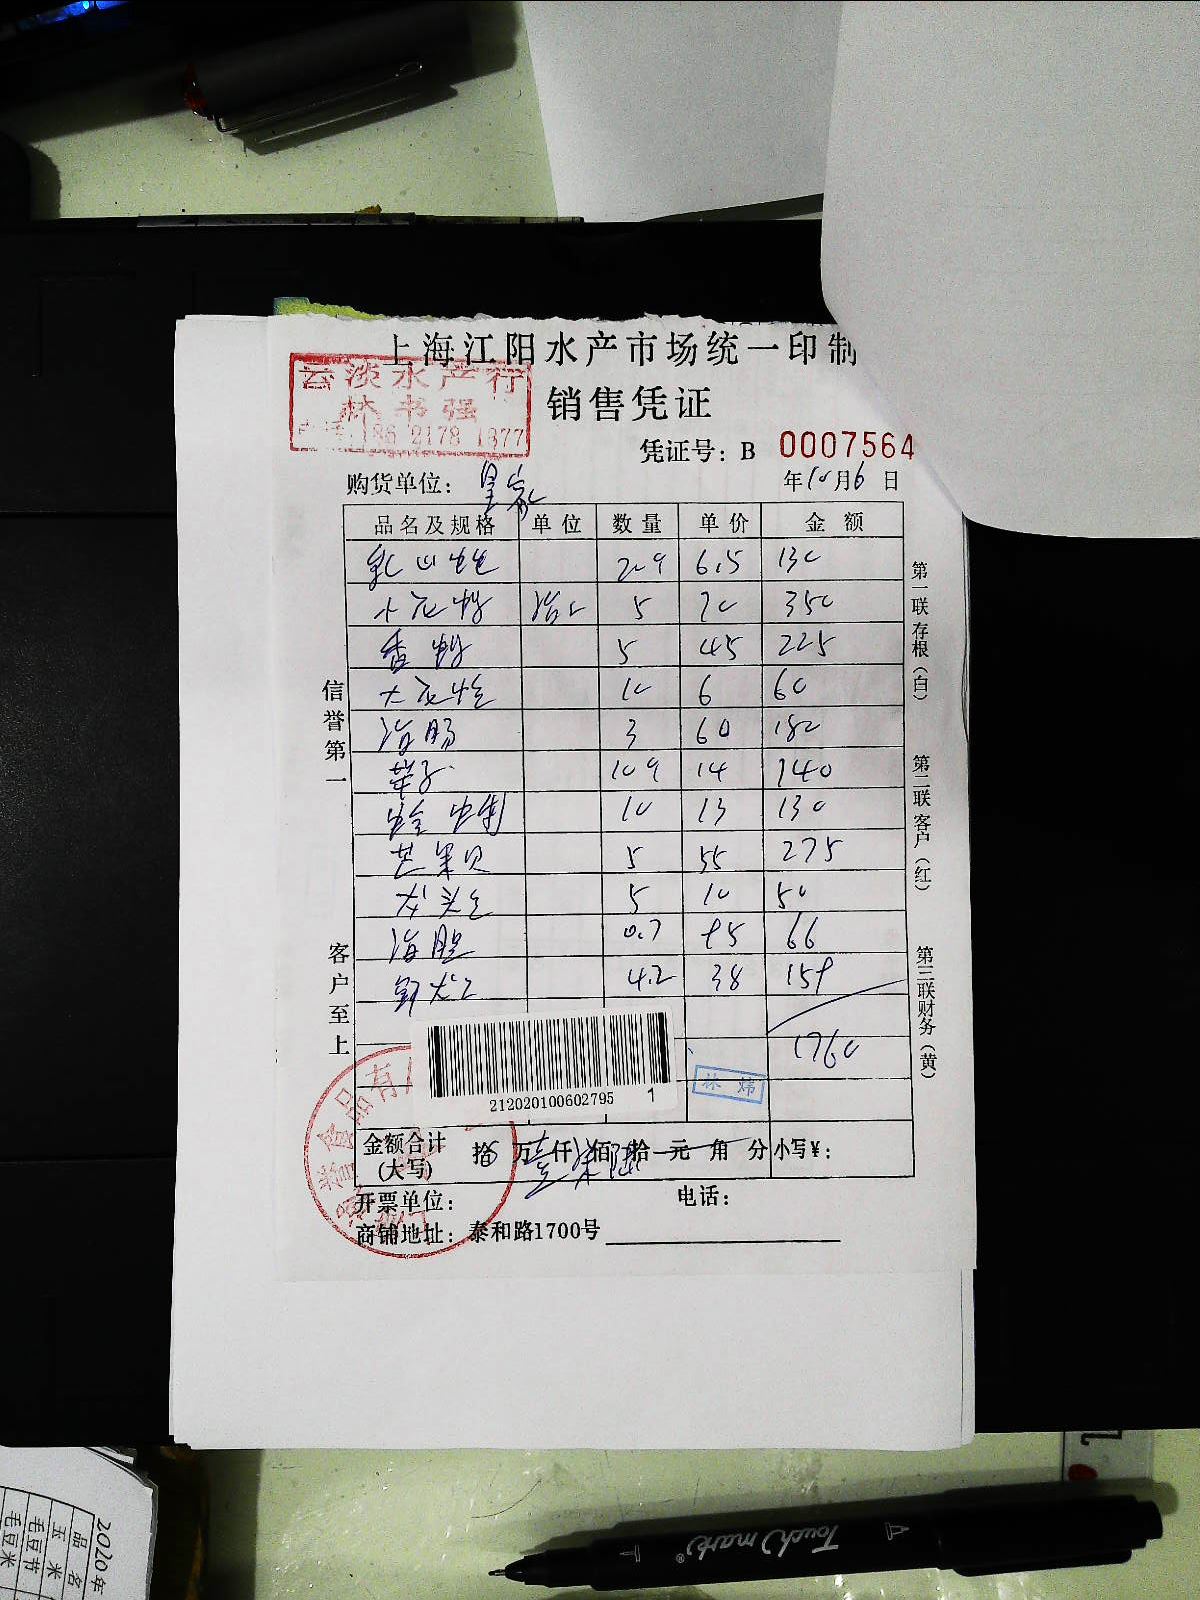 上海江阳水产市场统一印制
云淡水产行
林书强
186 2178 1877
销售凭证
凭证号：B 0007564
购货单位：皇家
年10月6日
品名及规格 单位 数量 单价 金额
乳山生蚝 20个 6.5 130
小花螺 5 70 350
香螺 5 45 225
大花蛤 10 6 60
海肠 3 60 180
10个 14 140
10 13 130
芒果贝 5 55 275
龙头鱼 5 10 50
海胆 0.7 95 66
4.2 38 159
1760
212020100602795 1
林炜
金额合计(大写) 拾 万 仟 佰 拾 元 角 分 小写¥：
壹 柒 陆
开票单位： 电话：
商铺地址：泰和路1700号
信誉第一
客户至上
第一联存根（白）
第二联客户（红）
第三联财务（黄）
Touch mark®
T
2020年
品名
玉米
毛豆节
毛豆米